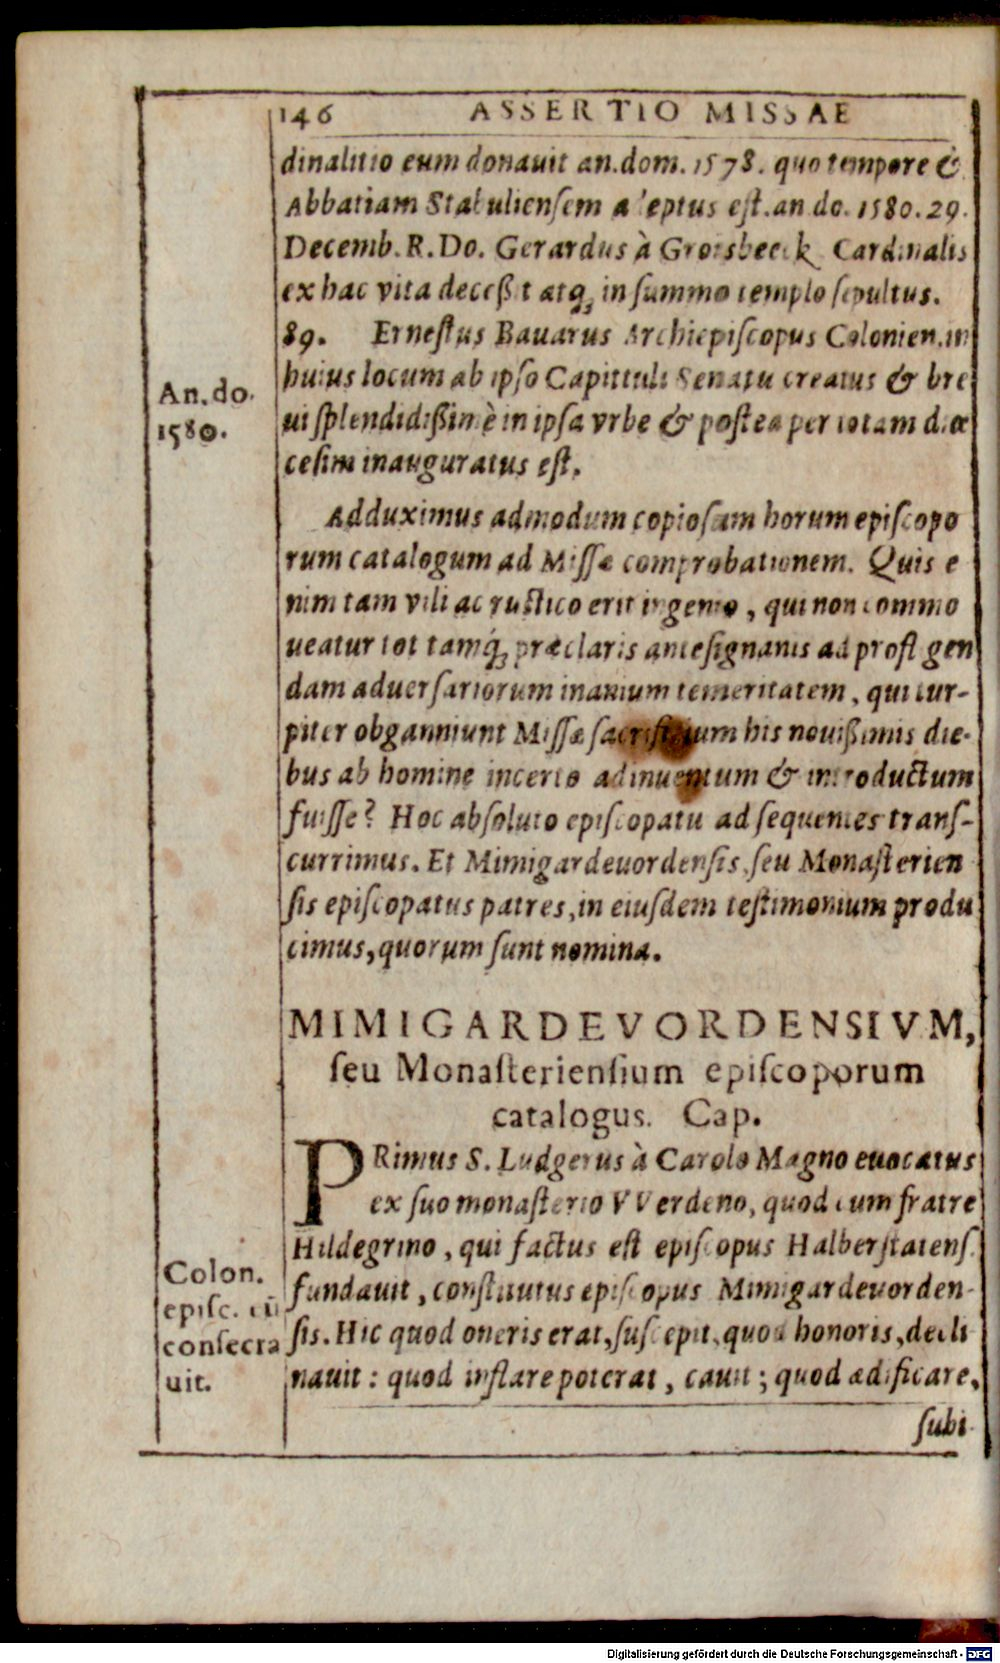 146 ASSERTIO MISSAE
dinalitio eum donauit an.dom. 1578. quo tempore &
Abbatiam Stabuliensem adeptus est. an do. 1580. 29.
Decemb. R. Do. Gerardus à Groisbeeck Cardinalis
ex hac vita deceßit atq; in summo templo sepultus.
89. Ernestus Bauarus Archiepiscopus Colonien. in
huius locum ab ipso Capituli Senatu creatus & bre
ui splendidißimè in ipsa vrbe & postea per totam diœ
cesim inauguratus est.
An. do.
1580.
Adduximus admodum copiosam horum episcopo
rum catalogum ad Missæ comprobationem. Quis e
nim tam vili ac rustico erit ingenio, qui non commo
ueatur tot tamq́; præclaris antesignanis ad profligen
dam aduersariorum inanium temeritatem, qui tur-
piter obganniunt Missæ sacrificium his nouißimis die-
bus ab homine incerto adinuentum & introductum
fuisse? Hoc absoluto episcopatu ad sequentes trans-
currimus. Et Mimigardeuordensis, seu Monasterien
sis episcopatus patres, in eiusdem testimonium produ
cimus, quorum sunt nomina.
MIMIGARDEVORDENSIVM,
seu Monasteriensium episcoporum
catalogus. Cap.
PRimus S. Ludgerus à Carolo Magno euocatus
ex suo monasterio VVerdeno, quod cum fratre
Hildegrino, qui factus est episcopus Halberstatens.
fundauit, constitutus episcopus Mimigardeuorden-
sis. Hic quod oneris erat, suscepit, quod honoris, decli
nauit: quod inflare poterat, cauit; quod ædificare,
Colon.
episc. cū
consecra
uit.
subi
Digitalisierung gefördert durch die Deutsche Forschungsgemeinschaft - DFG